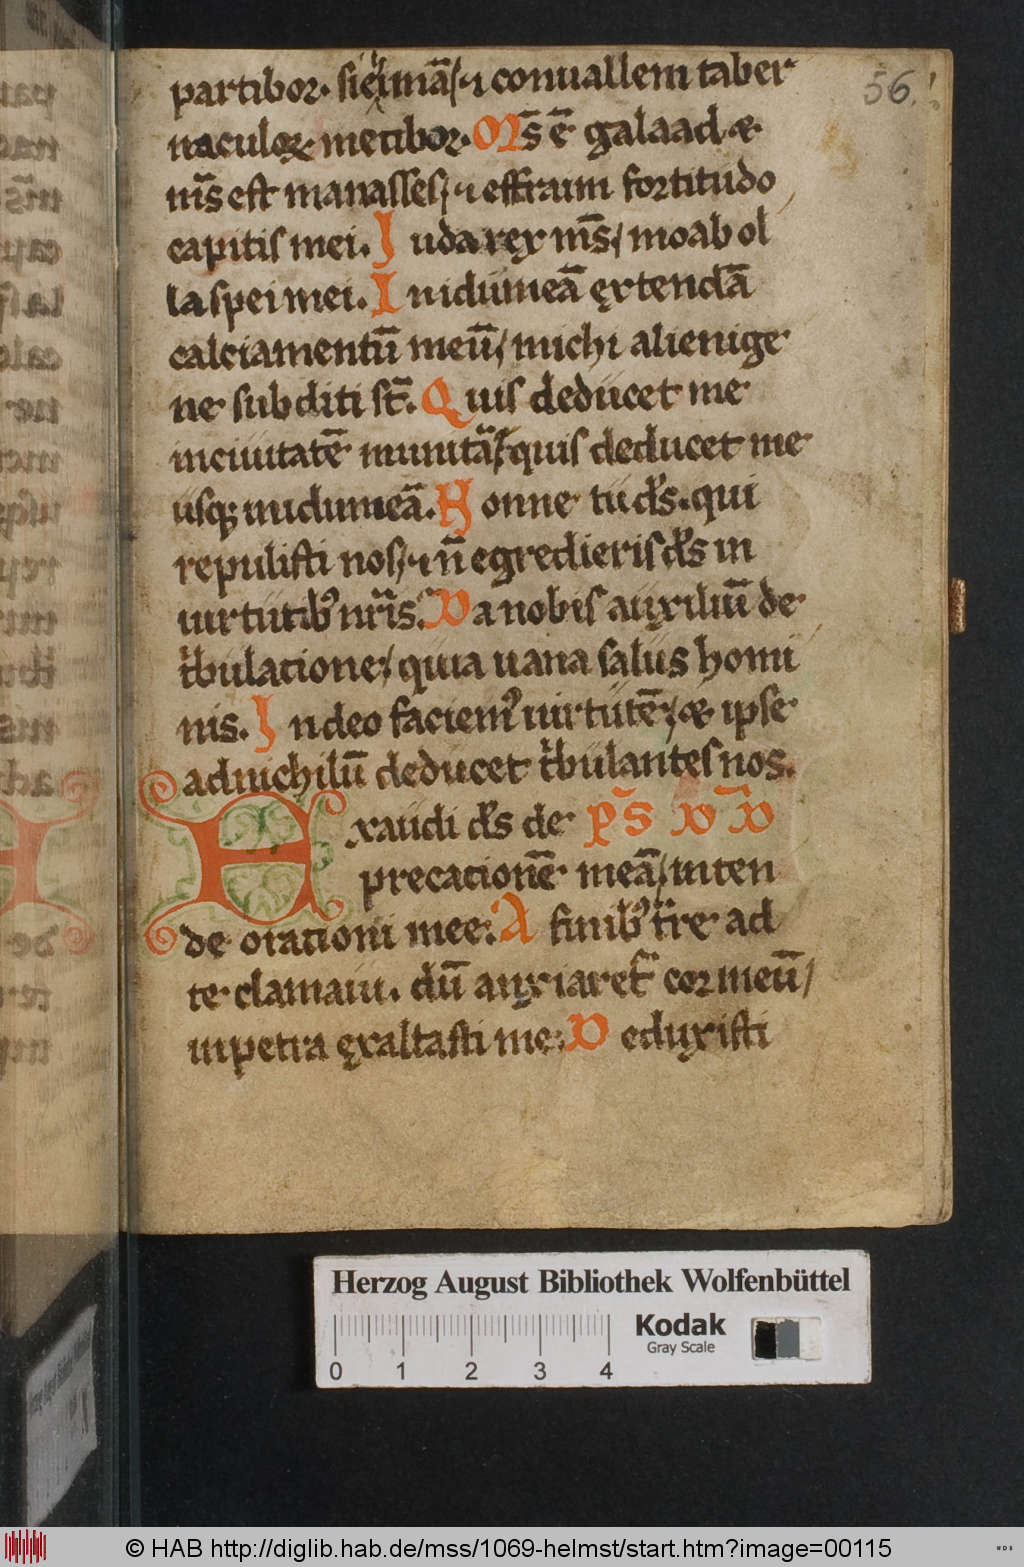 partibor. sicimā/ ⁊ conuallem taber
naculoꝝ metibor. Ms̄ ē galaad. &
ms̄ est manasses/ ⁊ effraim fortitudo
capitis mei. Iuda rex ms̄/ moab ol
la spei mei. In idumeā ęxtendā
calciamentū meū/ michi alienige
ne subditi st̄. Quis deducet me
inciuitatē munitā/ quis deducet me
usq; inidumeā. Nonne tu ds̄. qui
repulisti nos/ ⁊ n̄ egredieris ds̄ in
uirtutib᾿ nr̄is. Da nobis auxiliū de
t̄bulatione/ quia uana salus homi
nis. In deo faciem᾿ uirtutē/ & ipse
adnichilū deducet t̄bulantes nos.
Exaudi ds̄ de p̄s D D
precationē meā/ inten
de orationi mee. A finib᾿ t̄re ad
te clamaui. dū anxiaret᾿ cor meū/
inpetra ęxaltasti me. Deduxisti
56.
Herzog August Bibliothek Wolfenbüttel
Kodak
Gray Scale
0 1 2 3 4
© HAB http://diglib.hab.de/mss/1069-helmst/start.htm?image=00115